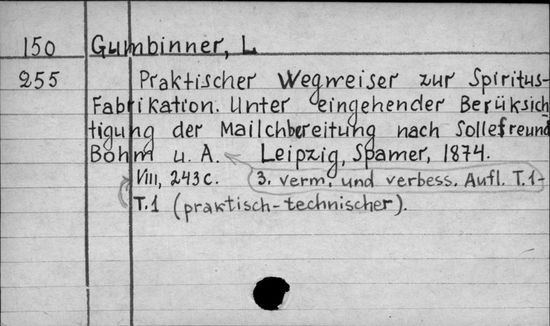 150 Gumbinner, L
255 Praktischer Wegweiser zur Spiritus-
Fabrikation. Unter eingehender Berüksich
tigung der Mailchbereitung nach Sollefreund
Böhm u. A. Leipzig, Spamer, 1874.
VIII, 243 c. 3. verm. und verbess. Aufl. T.1-
T.1 (praktisch-technischer).